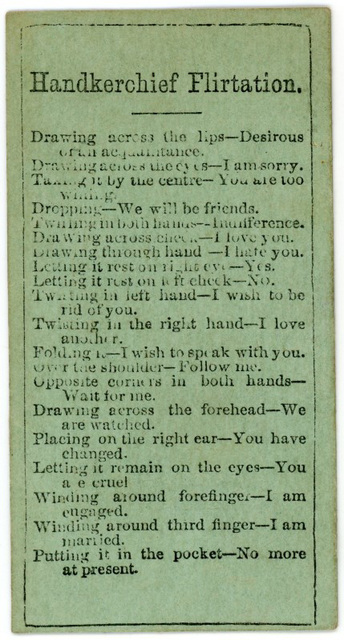 Handkerchief Flirtation.
Drawing across the lips—Desirous
of an acquaintance.
Drawing across the eyes—I am sorry.
Taking it by the centre—You are too
willing.
Dropping—We will be friends.
Twirling in both hands—Indifference.
Drawing across cheek—I love you.
Drawing through hand—I hate you.
Letting it rest on right eye—Yes.
Letting it rest on left cheek—No.
Twisting in left hand—I wish to be
rid of you.
Twisting in the right hand—I love
another.
Folding it—I wish to speak with you.
Over the shoulder—Follow me.
Opposite corners in both hands—
Wait for me.
Drawing across the forehead—We
are watched.
Placing on the right ear—You have
changed.
Letting it remain on the eyes—You
are cruel
Winding around forefinger—I am
engaged.
Winding around third finger—I am
married.
Putting it in the pocket—No more
at present.